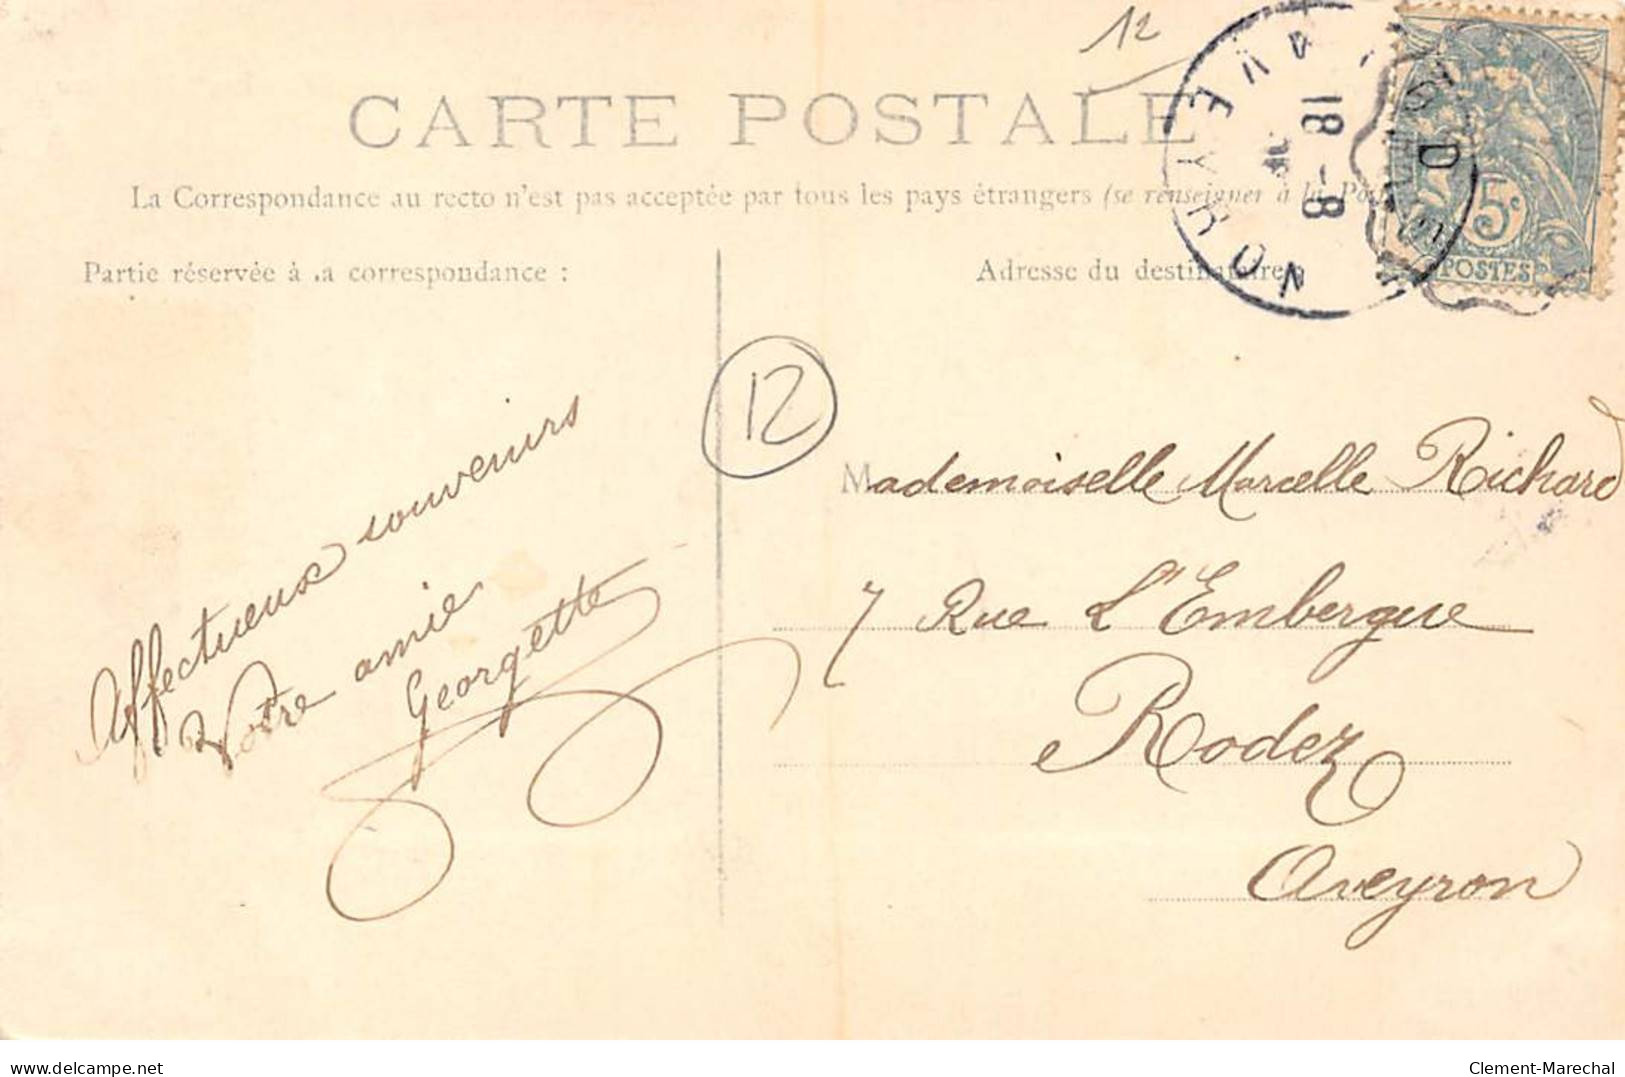 12
CARTE POSTALE
La Correspondance au recto n'est pas acceptée par tous les pays étrangers (se renseigner à la Pos
Partie réservée à la correspondance :
Adresse du destinataire
AVEYRON
18 - 8
D
5c
POSTES
12
Affectueux souvenirs
Votre amie
Georgette
Mademoiselle Marcelle Richard
7 Rue L'Embergue
Rodez
Aveyron
Clement-Marechal